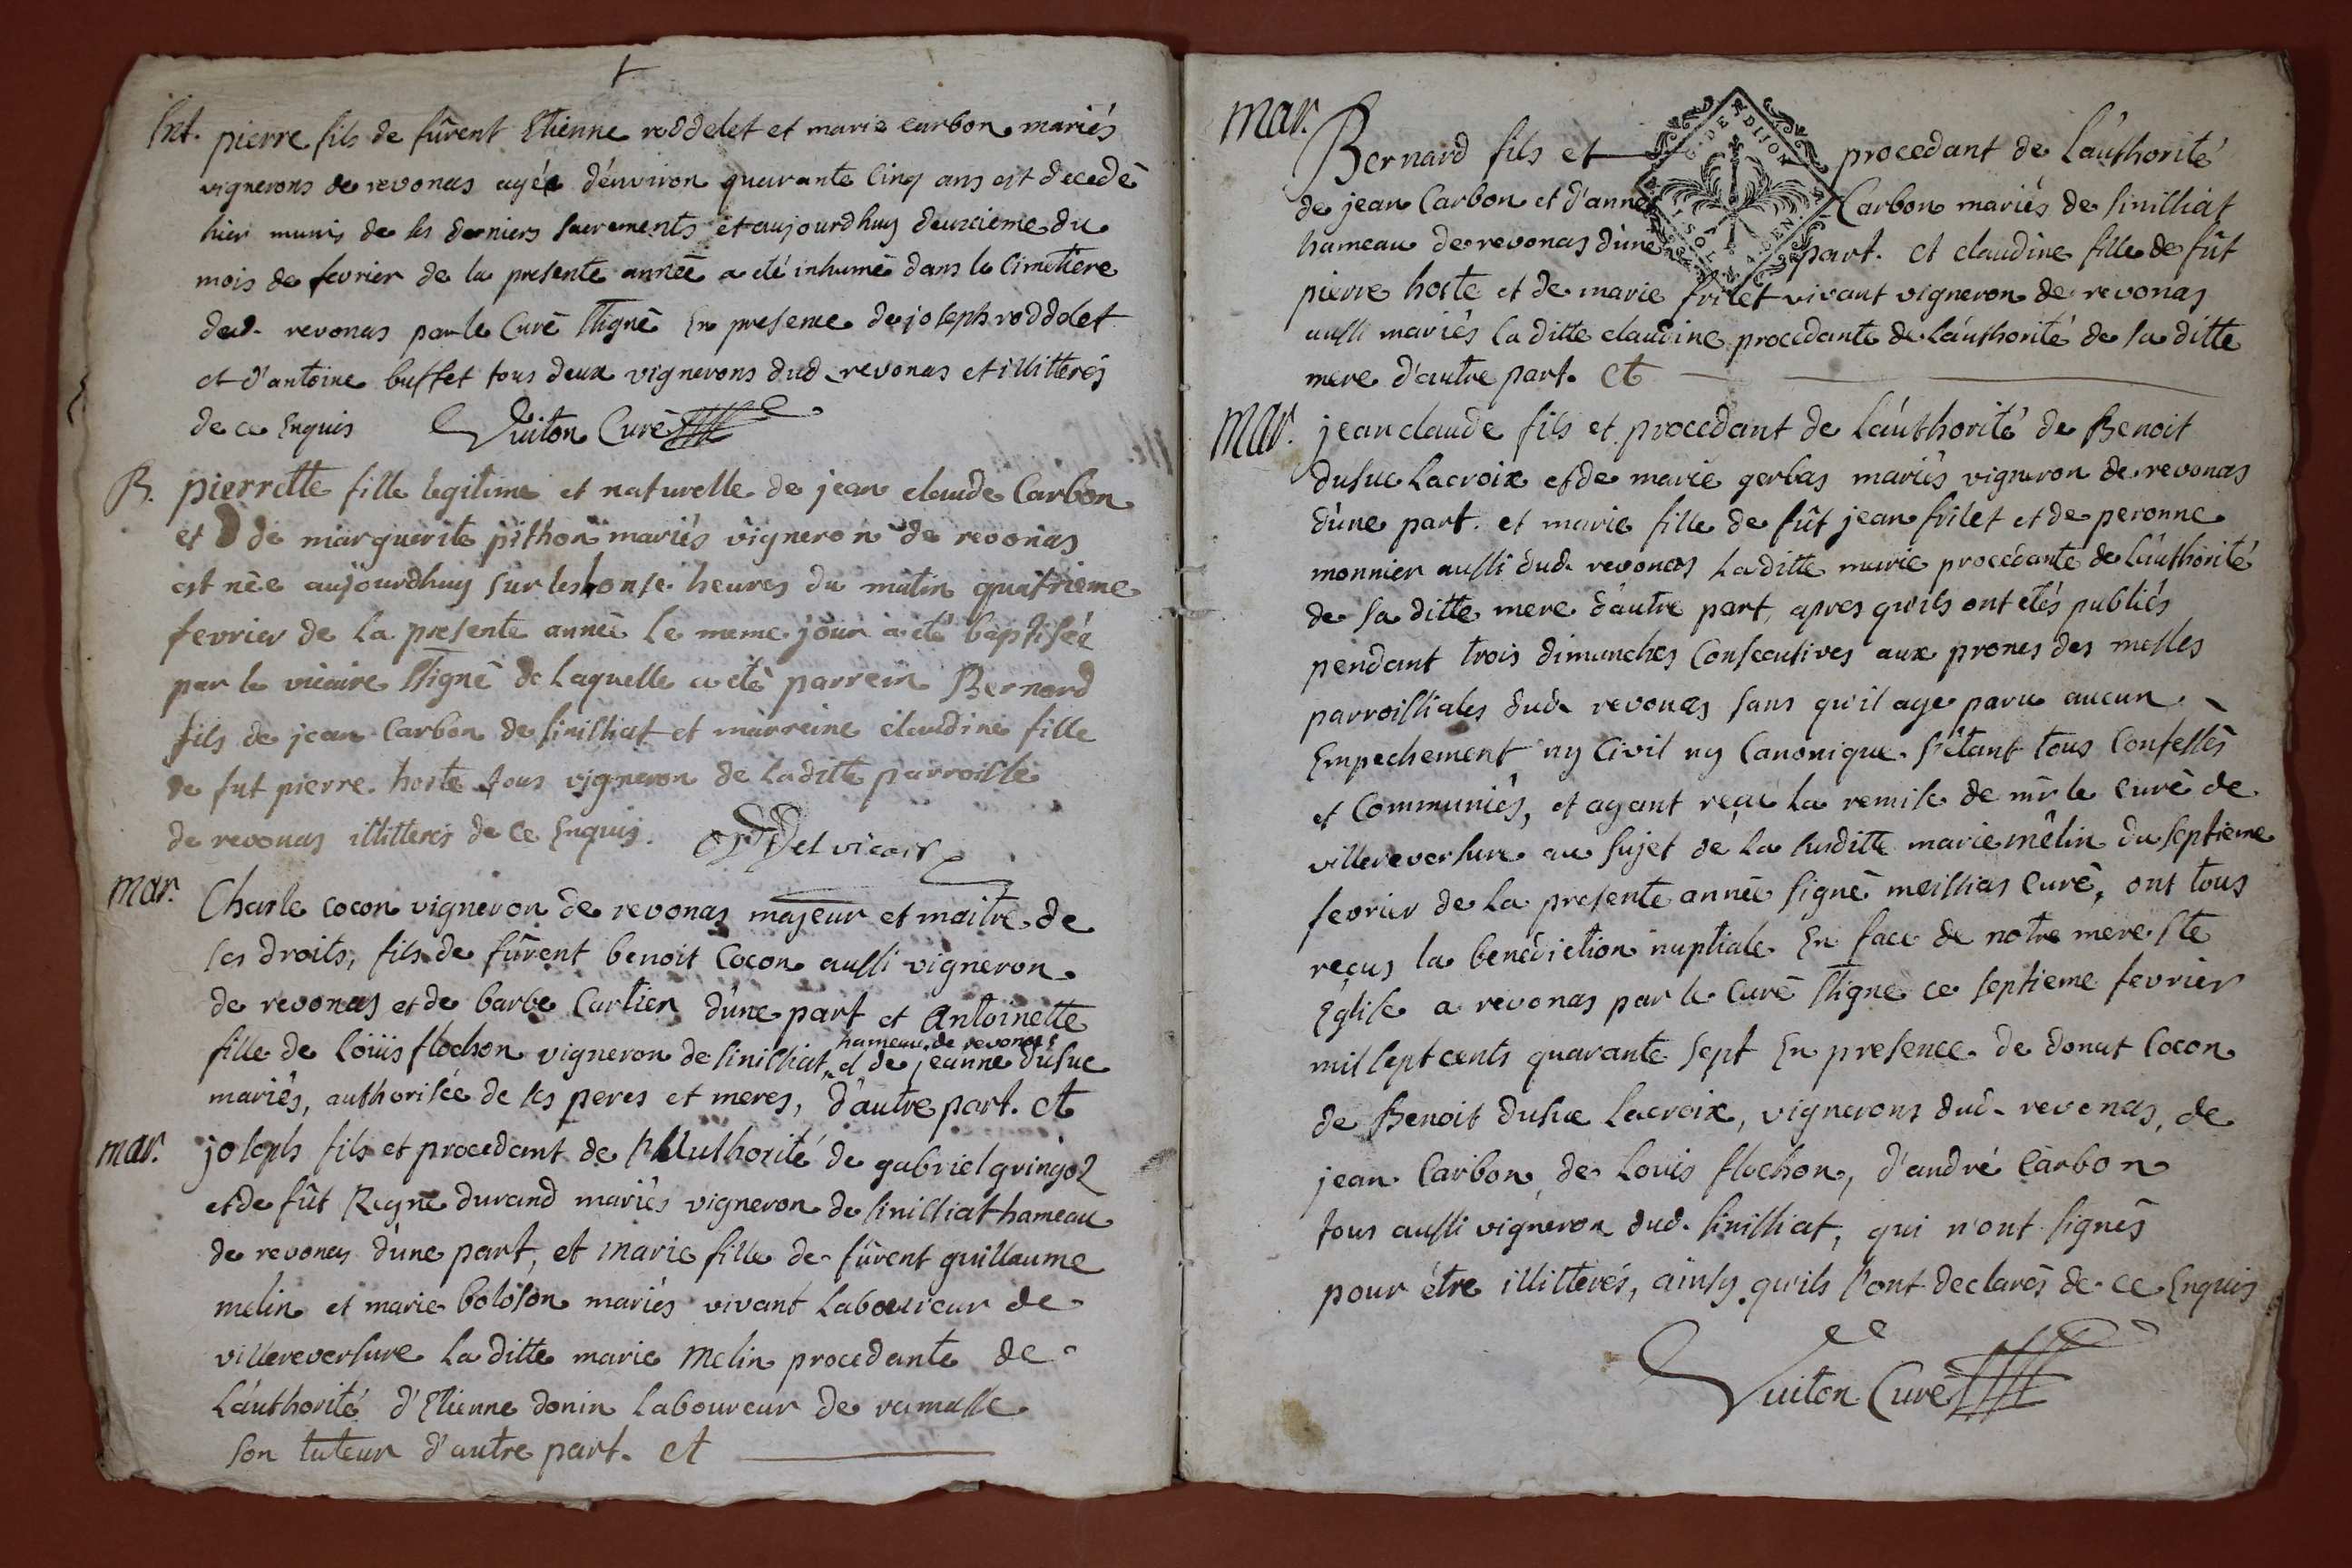 Int. pierre fils de fûrent Etienne roddelet et marie carbon mariés
vignerons de revonas agée d'environ quarante Cinq ans est decedè
hier munis de ses derniers sacrements et aujourdhuy deuxieme du
mois de fevrier de la presente année a été inhumé dans le Cimetiere
dud. revonas par le Curé ssignè En presence de joseph roddelet
et d'antoine buffet tous deux vignerons dud. revonas et illitterés
de ce Enquis Vuiton Curè
B. pierrette fille legitime et naturelle de jean claude Carbon
et de marguerite pithon mariés vigneron de revonas
est nèe aujourdhuy sur les onse heures du matin quatrieme
fevrier de la presente année le meme jour a été baptisée
par le vicaire ssignè de laquelle a etè parrein Bernard
fils de jean Carbon de sinilliat et marreine claudine fille
de fut pierre hoste tous vigneron de laditte parroisse
de revonas illitterés de ce Enquis.
mar. Charle cocon vigneron de revonas majeur et maitre de
ses droits, fils de fûrent benoit Cocon aussi vigneron
de revonas et de barbe Cartier d'une part et Antoinette
hameau de revonas
fille de loüis flochon vigneron de sinilliat, et de jeanne dusuc
mariés, authorisée de ses peres et meres, d'autre part. et
mar. joseph fils et procedant de l'Authorité de gabriel gringoz
et de fût Regne durand mariés vigneron de sinilliat hameau
de revonas d'une part, et marie fille de fûrent guillaume
melin et marie boloson mariés vivant laboureur de
villereversure la ditte marie Melin procedante de
l'authorité d'Etienne donin laboureur de ramasse
son tuteur d'autre part. et
mar. Bernard fils et procedant de l'authorité
G. DE DIJON
de jean Carbon et d'anne Carbon mariés de sinilliat
hameau de revonas d'une part. et claudine fille de fût
pierre hoste et de marie frilet vivant vigneron de revonas
aussi mariés la ditte claudine procedante de l'authorité de sa ditte
mere d'autre part. et
mar. jean claude fils et procedant de l'authorité de Benoit
dusuc Lacroix et de marie gerbas mariés vigneron de revonas
d'une part. et marie fille de fût jean frilet et de peronne
monnier aussi dud. revonas la ditte marie procedante de l'authorité
de sa ditte mere d'autre part, apres qu'ils ont etés publiés
pendant trois dimanches Consecutives aux prones des messes
parroissiales dud. revonas sans qu'il aye paru aucun
Empechement ny Civil ny Canonique. s'étant tous Confessès
et Communiés, et ayant reçu la remise de mr le curè de
villereversure au sujet de la susditte marie mêlin du septieme
fevrier de la presente année signè meillias curè, ont tous
reçus la benediction nuptiale En face de notre mere ste
Eglise a revonas par le curè ssigne ce septieme fevrier
mil sept cents quarante sept En presence de donat Cocon
de Benoit dusuc lacroix, vignerons dud. revonas, de
jean Carbon, de Louis flochon, d'andré Carbon
tous aussi vigneron dud. sinilliat, qui n'ont signès
pour être illitterés, ainsy qu'ils l'ont declarès de ce Enquis
Vuiton Curè